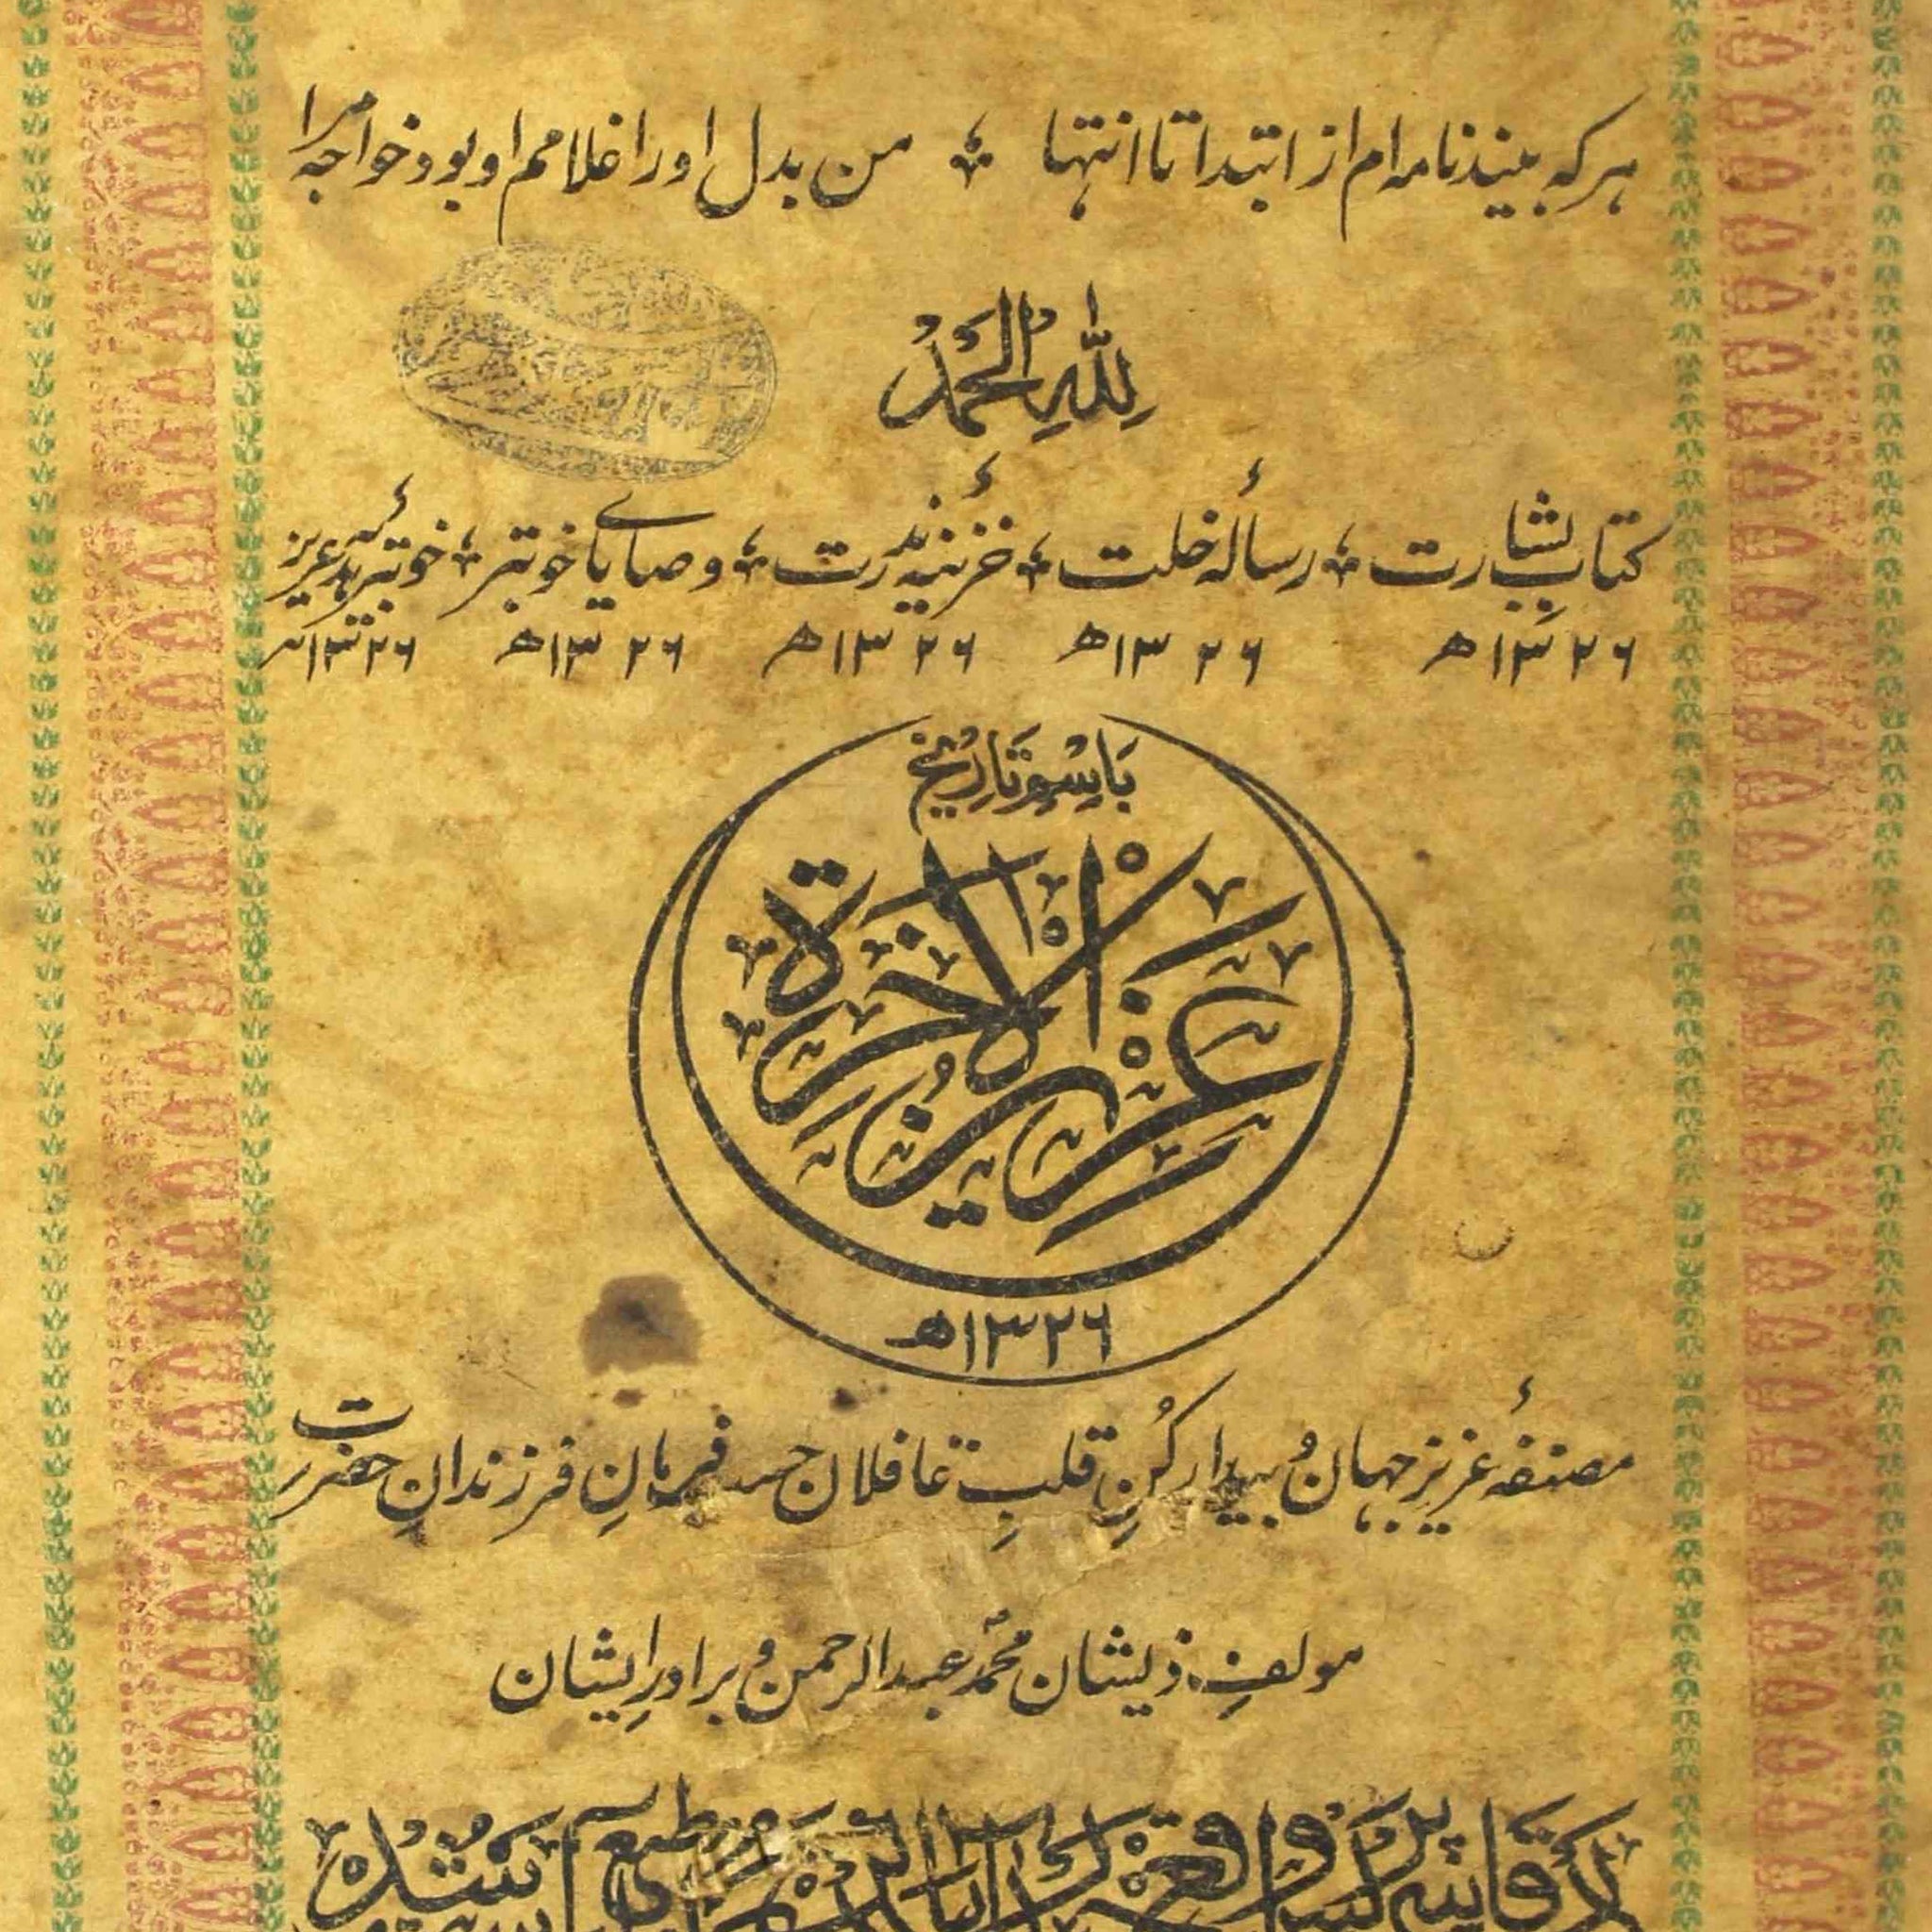 هر که بیند نامه ام از ابتدا تا انتها ؞ من بدل او را غلامم او بود خواجه مرا
لله الحمد
کتاب بشارت ؞ رسالهٔ خلت ؞ خزینهٔ ندرت ؞ وصایاے خوبتر ؞ خوبتر عزیز
۱۳۲۶ھ ۱۳۲۶ھ ۱۳۲۶ھ ۱۳۲۶ھ ۱۳۲۶ھ
بَاِسْمِ تَارِیْخ
عزیز الآخرة
۱۳۲۶ھ
مصنفهٔ عزیز جهان و بیدار کُنِ قلبِ غافلان فرزندانِ حضرت
مولفِ ذیشان محمّد عبدالرحمن و برادرِ ایشان
پریس واقع مطبع شد